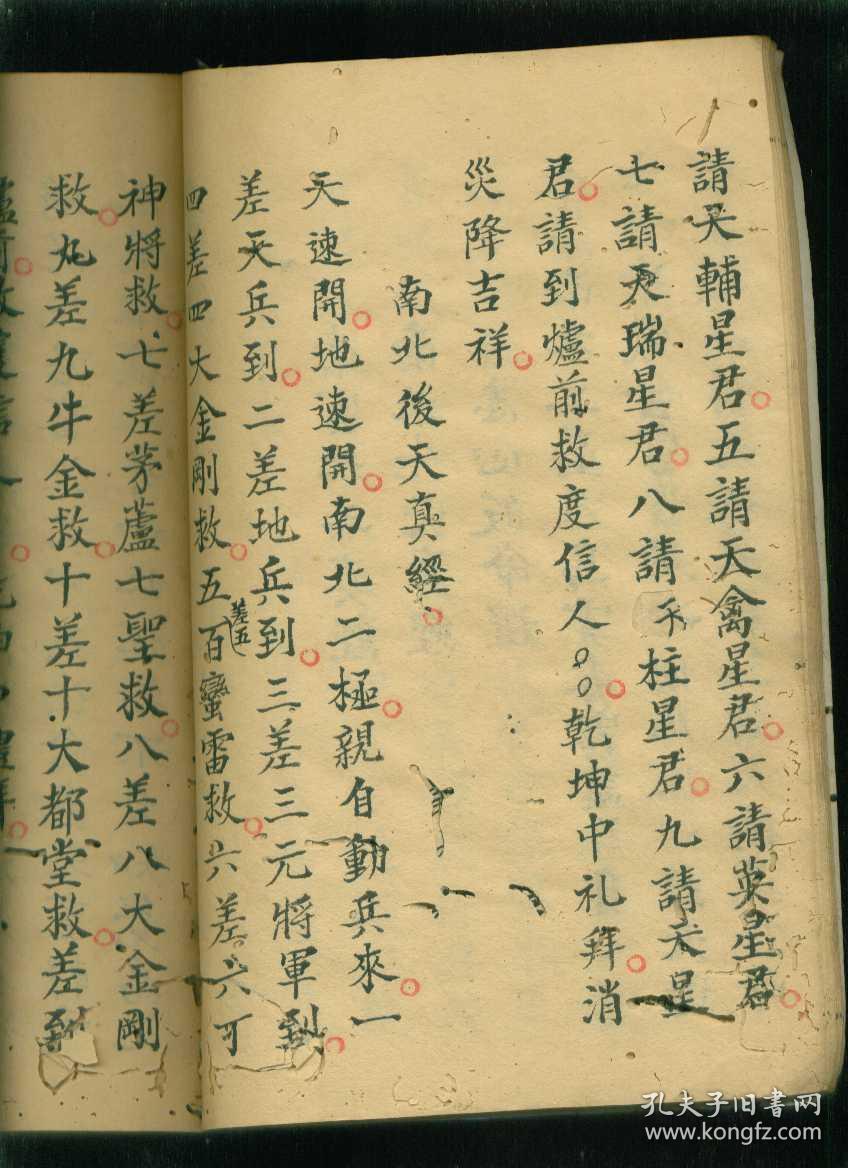 請天輔星君五請天禽星君六請英星君
七請天瑞星君八請天柱星君九請天星
君請到爐前救度信人乾坤中礼拜消
災降吉祥
南北後天真經
天速開地速開南北二極親自動兵來一
差天兵到二差地兵到三差三元將軍到
四差四大金剛救五差五百蠻雷救六差六丁
神將救七差茅蘆七聖救八差八大金剛
救九差九牛金救十差十大都堂救差到
孔夫子旧書网
www.kongfz.com